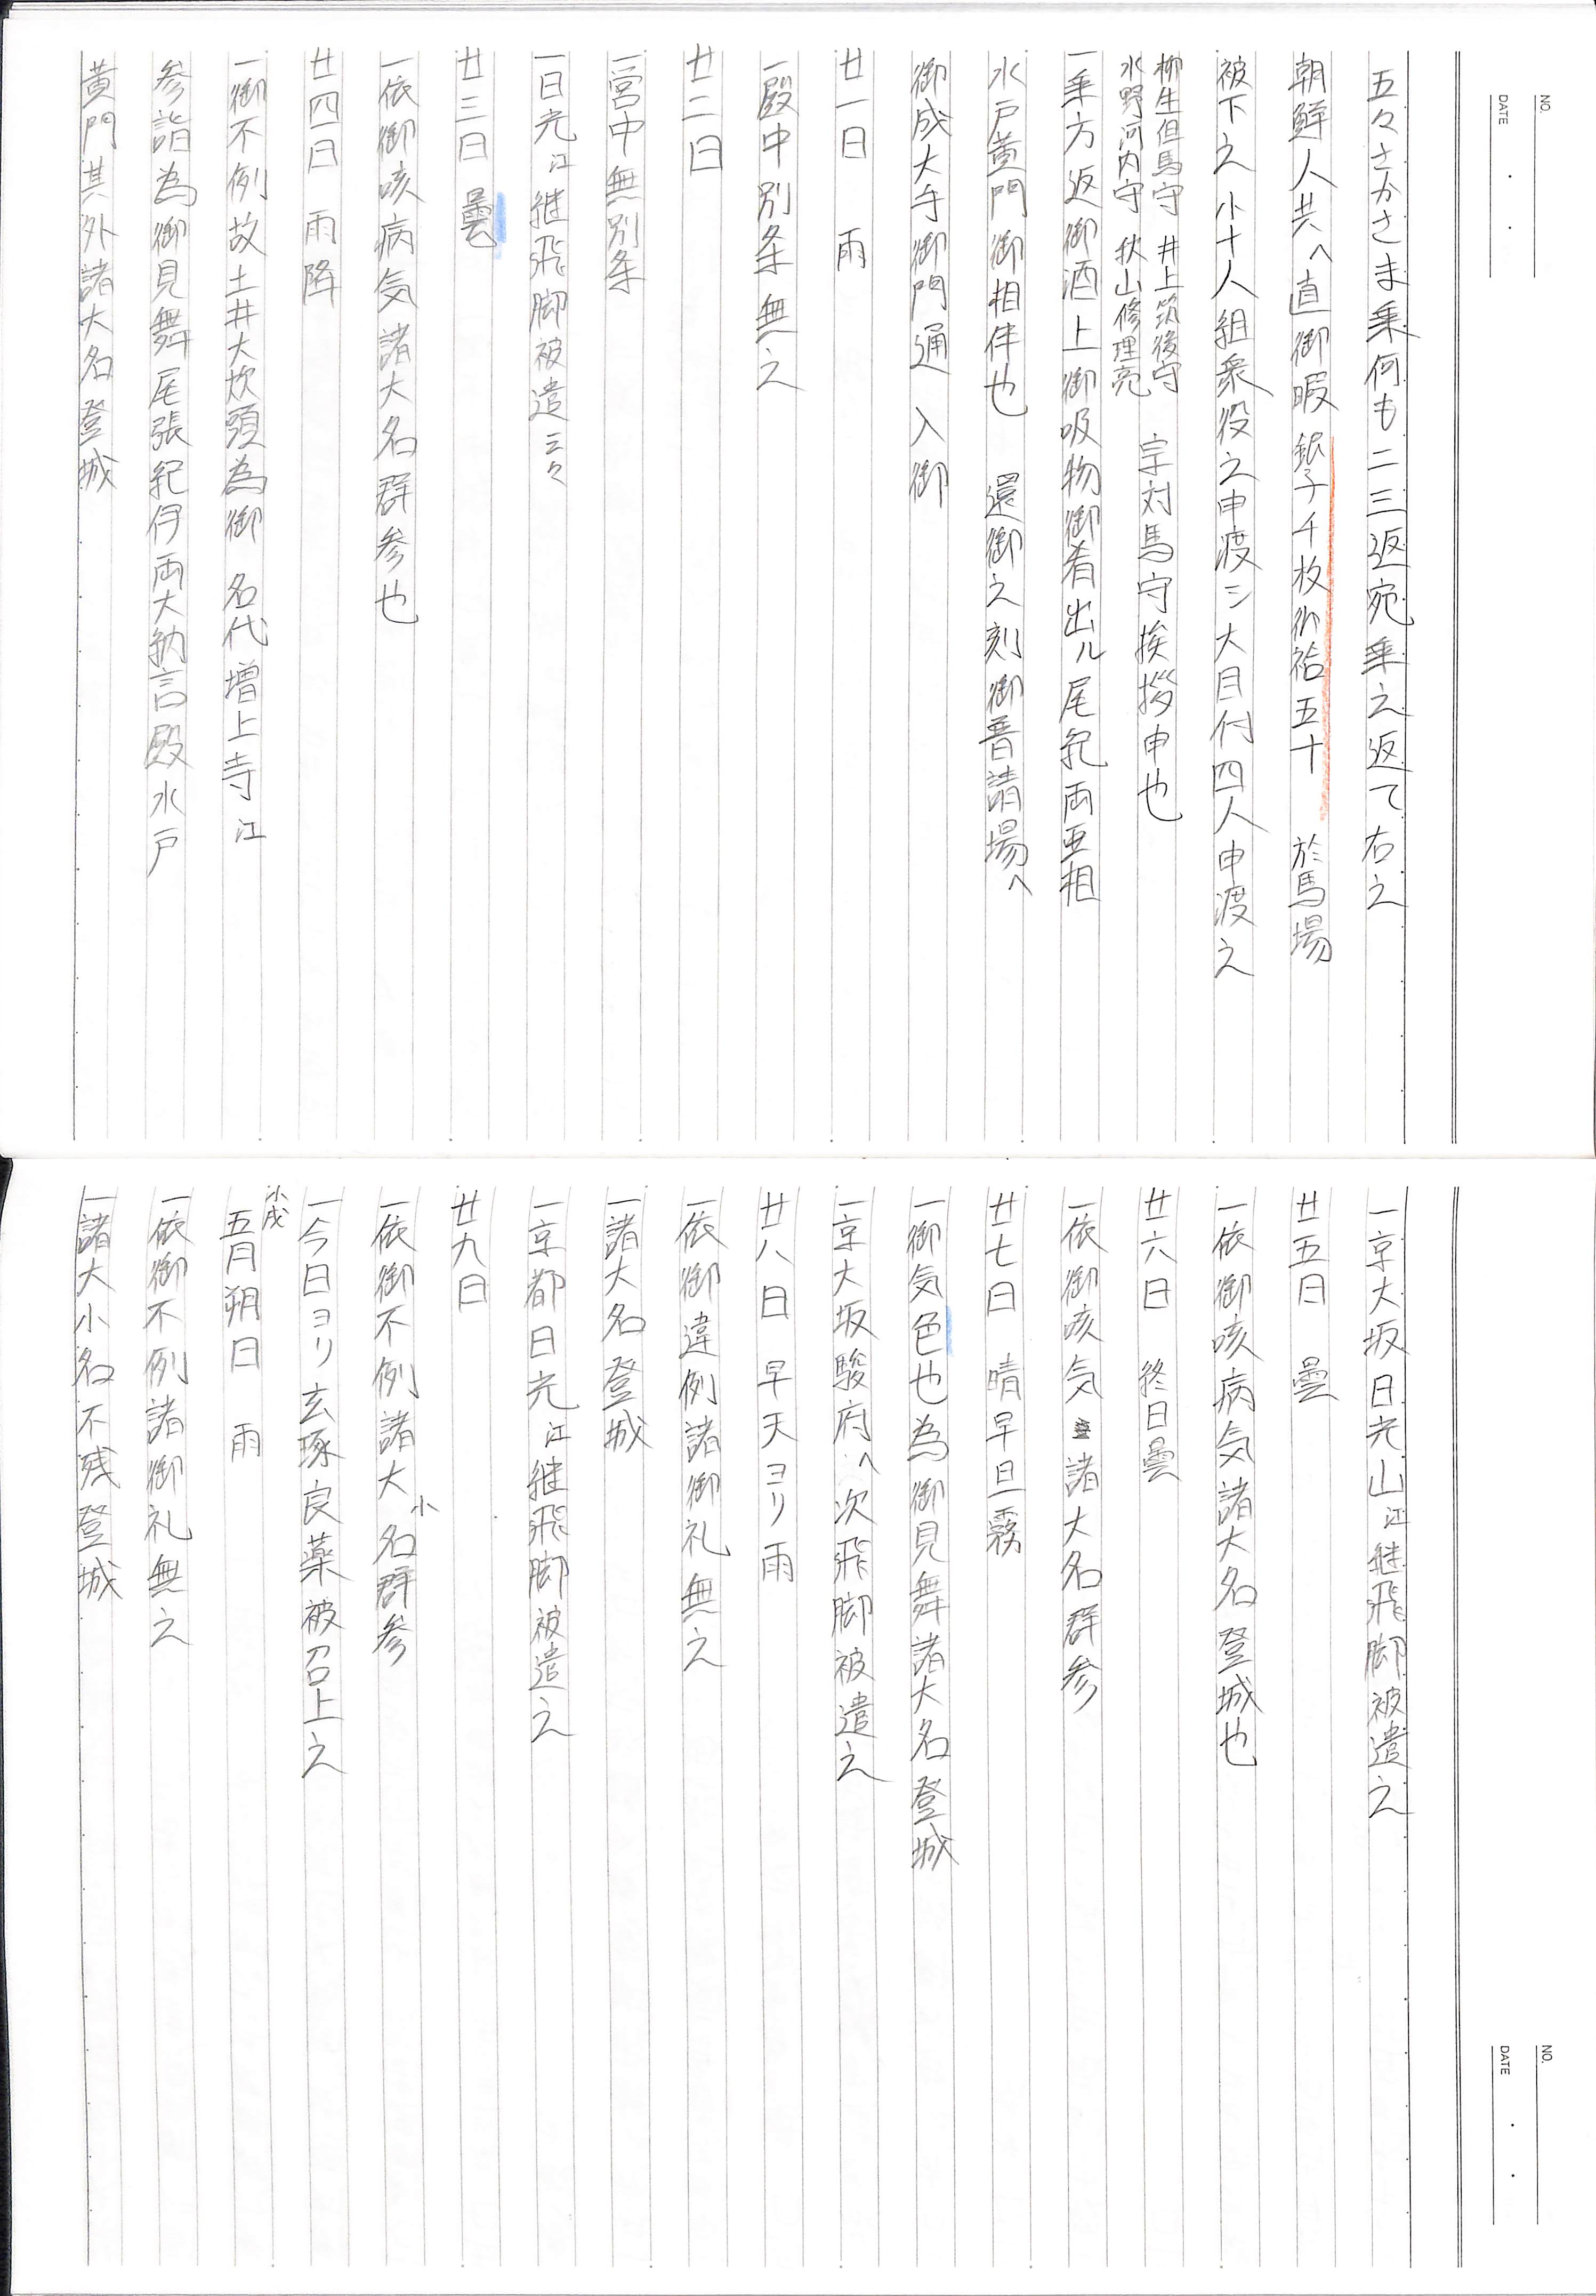 NO.
DATE
五々さかさま乗何も二三返宛乗之返て右之
朝鮮人共へ直御暇銀子千枚御袷五十 於馬場
被下之小十人組衆役之申渡シ大目付四人申渡之
柳生但馬守 井上筑後守
水野河内守 秋山修理亮
宗対馬守挨拶申也
一乗方返御酒上御吸物御肴出ル尾紀両亜相
水戸黄門御相伴也 還御之刻御普請場へ
御成大手御門通入御
廿一日 雨
一殿中別条無之
廿二日
一宮中無別条
一日光江継飛脚被遣云々
廿三日 曇
一依御咳病気諸大名群参也
廿四日 雨降
一御不例故土井大炊頭為御名代増上寺江
参詣為御見舞尾張紀伊両大納言殿水戸
黄門其外諸大名登城
NO.
DATE
一京大坂日光山江継飛脚被遣之
廿五日 曇
一依御咳病気諸大名登城也
廿六日 終日曇
一依御咳気諸大名群参
廿七日 晴早旦霧
一御気色也為御見舞諸大名登城
一京大坂駿府へ次飛脚被遣之
廿八日 早天ヨリ雨
一依御違例諸御礼無之
一諸大名登城
一京都日光江継飛脚被遣之
廿九日
一依御不例諸大小名群参
一今日ヨリ玄琢良薬被召上之
小戌
五月朔日 雨
一依御不例諸御礼無之
一諸大小名不残登城